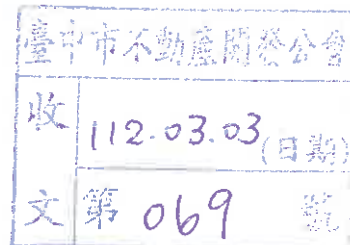 臺中市不動產開發公會
收 112.03.03(日期)
文 第 069 號